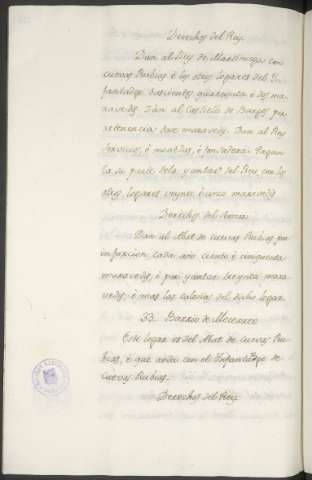 Derechos del Rey.
Dan al Rey de Martiniega con
cuevas Rubias é los otros logares del Yn-
fantadgo dosientos quarenta é dos ma-
ravedis. Dan al Castiello de Burgos por
retenencia doce maravedis. Dan al Rey
servicios, é monedas, é fonsadera. Pagan
la su parte dela yantar del Rey con los
otros logares veynte é cinco maravedis
Derechos del Señor.
Dan al Abat de cuevas Rubias por
infurcion cada año ciento é cinquenta
maravedis, é por yantar treynta mara-
vedis, é mas las calonas del dicho logar.
33. Barrio de
Este logar es del Abat de cuevas Ru-
bias, é que anda con el Infantadgo de
cuevas Rubias.
Derechos del Rey.